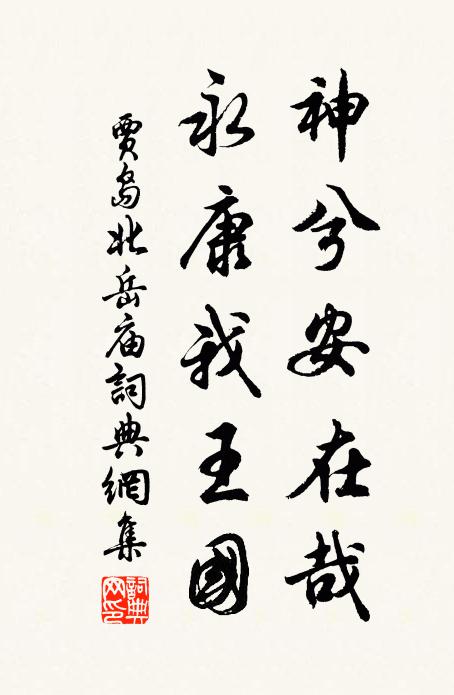 神兮安在哉
永康我王國
賈島北岳庙詞典網集
詞典网印